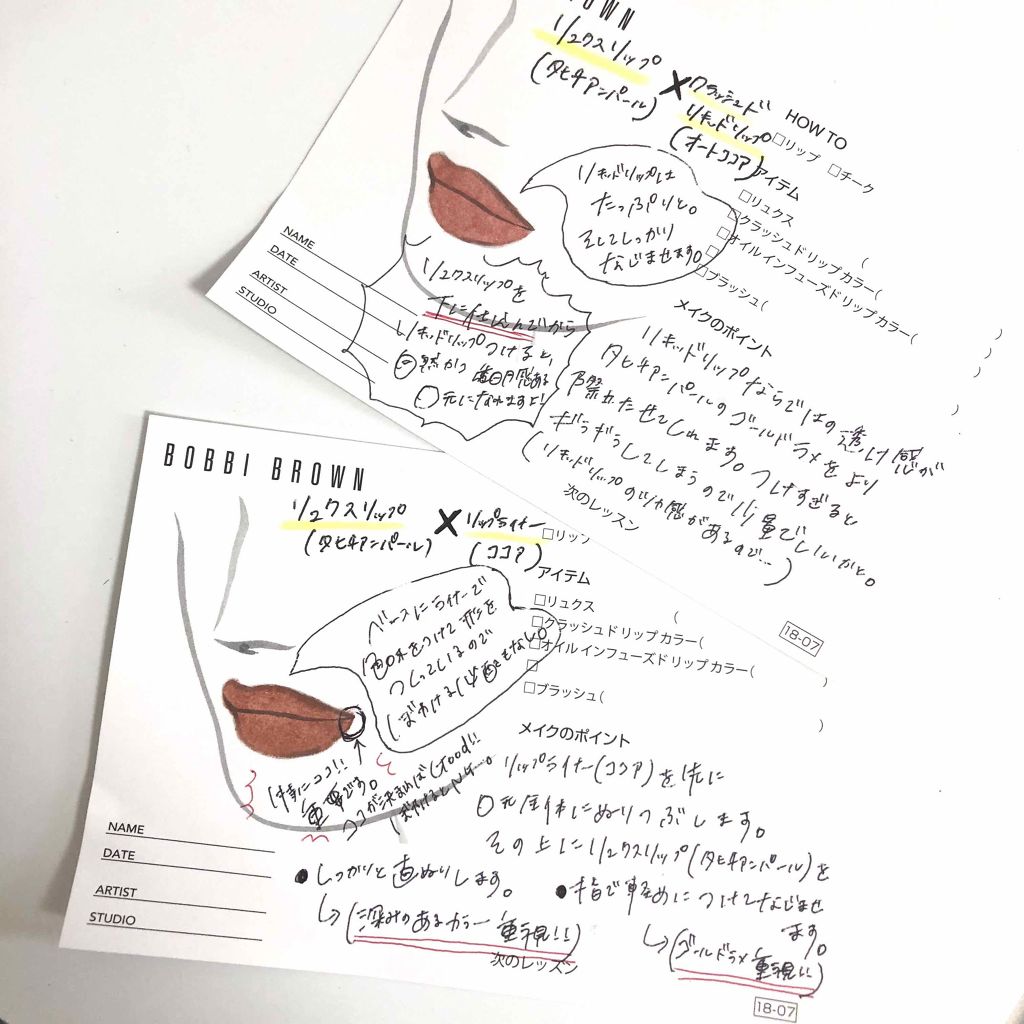 BROWN
リュクスリップ
(タヒチアンパール)
×
クラッシュド
リキッドリップ
(オートココア)
HOW TO
□リップ □チーク
アイテム
□リュクス
□クラッシュドリップカラー(
□オイルインフューズドリップカラー( )
□ )
□ブラッシュ( )
リキッドリップは
たっぷりと。
そしてしっかり
なじませます。
NAME
DATE
ARTIST
STUDIO
リュクスリップを
下に仕込んでから
リキッドリップつけると、
自然かつ透明感ある
口元になれますよ!
メイクのポイント
リキッドリップならではの透け感が
タヒチアンパールのゴールドラメをより
際立たせてくれます。つけすぎると
ギラギラしてしまうので少量でいいかと。
(リキッドリップのツヤ感があるので…)
次のレッスン
18-07
BOBBI BROWN
リュクスリップ
(タヒチアンパール)
×
リップライナー
(ココア)
□リップ
アイテム
□リュクス
□クラッシュドリップカラー(
□オイルインフューズドリップカラー(
□ )
□ブラッシュ( )
ベースにライナーで
色味をつけて形を
つくっているので
ぼかける心配もない。
特にココ!!
重要です。
ココが決まればGood!!
NAME
DATE
ARTIST
STUDIO
メイクのポイント
リップライナー(ココア)を先に
口元全体にぬりつぶします。
その上にリュクスリップ(タヒチアンパール)を
●しっかりと直ぬりします。
↳(深みのあるカラー重視!!)
●指で軽めにつけてなじませ
ます。
↳(ゴールドラメ重視!!)
次のレッスン
18-07